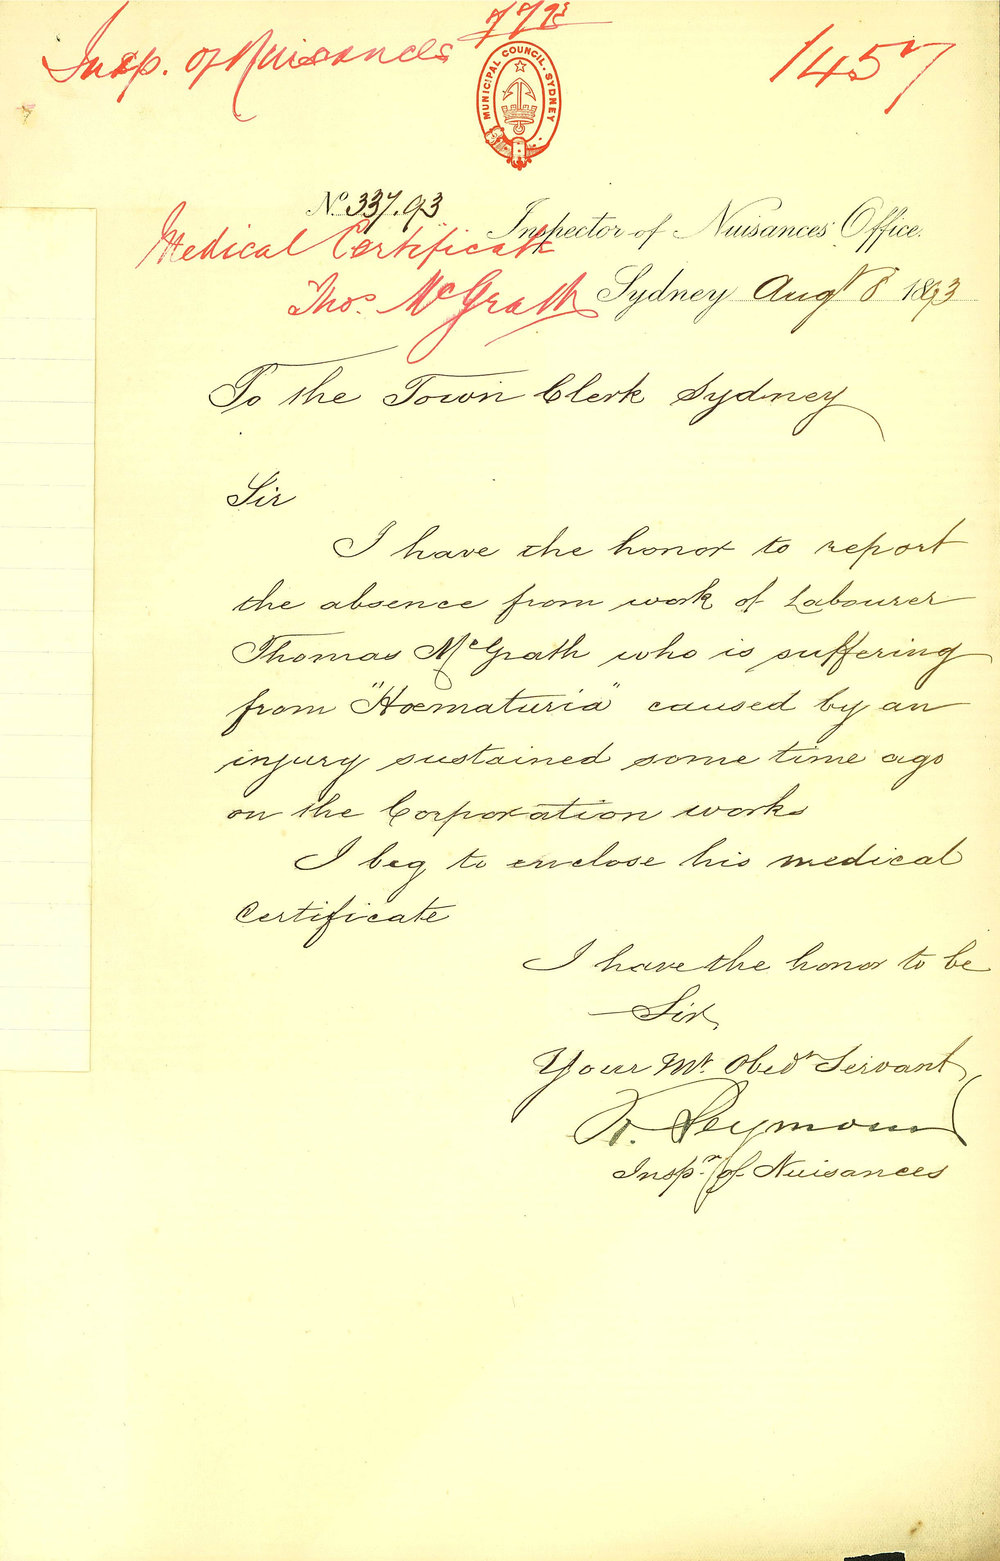 Insp. of Nuisances
1457
MUNICIPAL COUNCIL. SYDNEY
No. 337.93
Inspector of Nuisances Office.
Medical Certificate
Thos. McGrath
Sydney Augt 8 1893
To the Town Clerk Sydney
Sir
I have the honor to report
the absence from work of Labourer
Thomas McGrath who is suffering
from "Hœmaturia" caused by an
injury sustained some time ago
on the Corporation works
I beg to enclose his medical
Certificate
I have the honor to be
Sir
Your Mt. Obedt Servant
R. Seymour
Inspr. of Nuisances